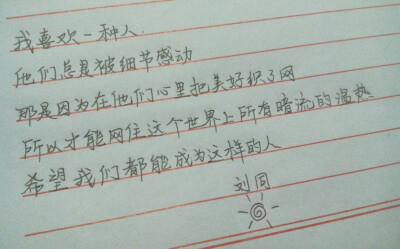 我喜欢一种人.
他们总是被细节感动
那是因为在他们心里把美好织了网
所以才能网住这个世界上所有暗流的温热
希望我们都能成为这样的人
刘同